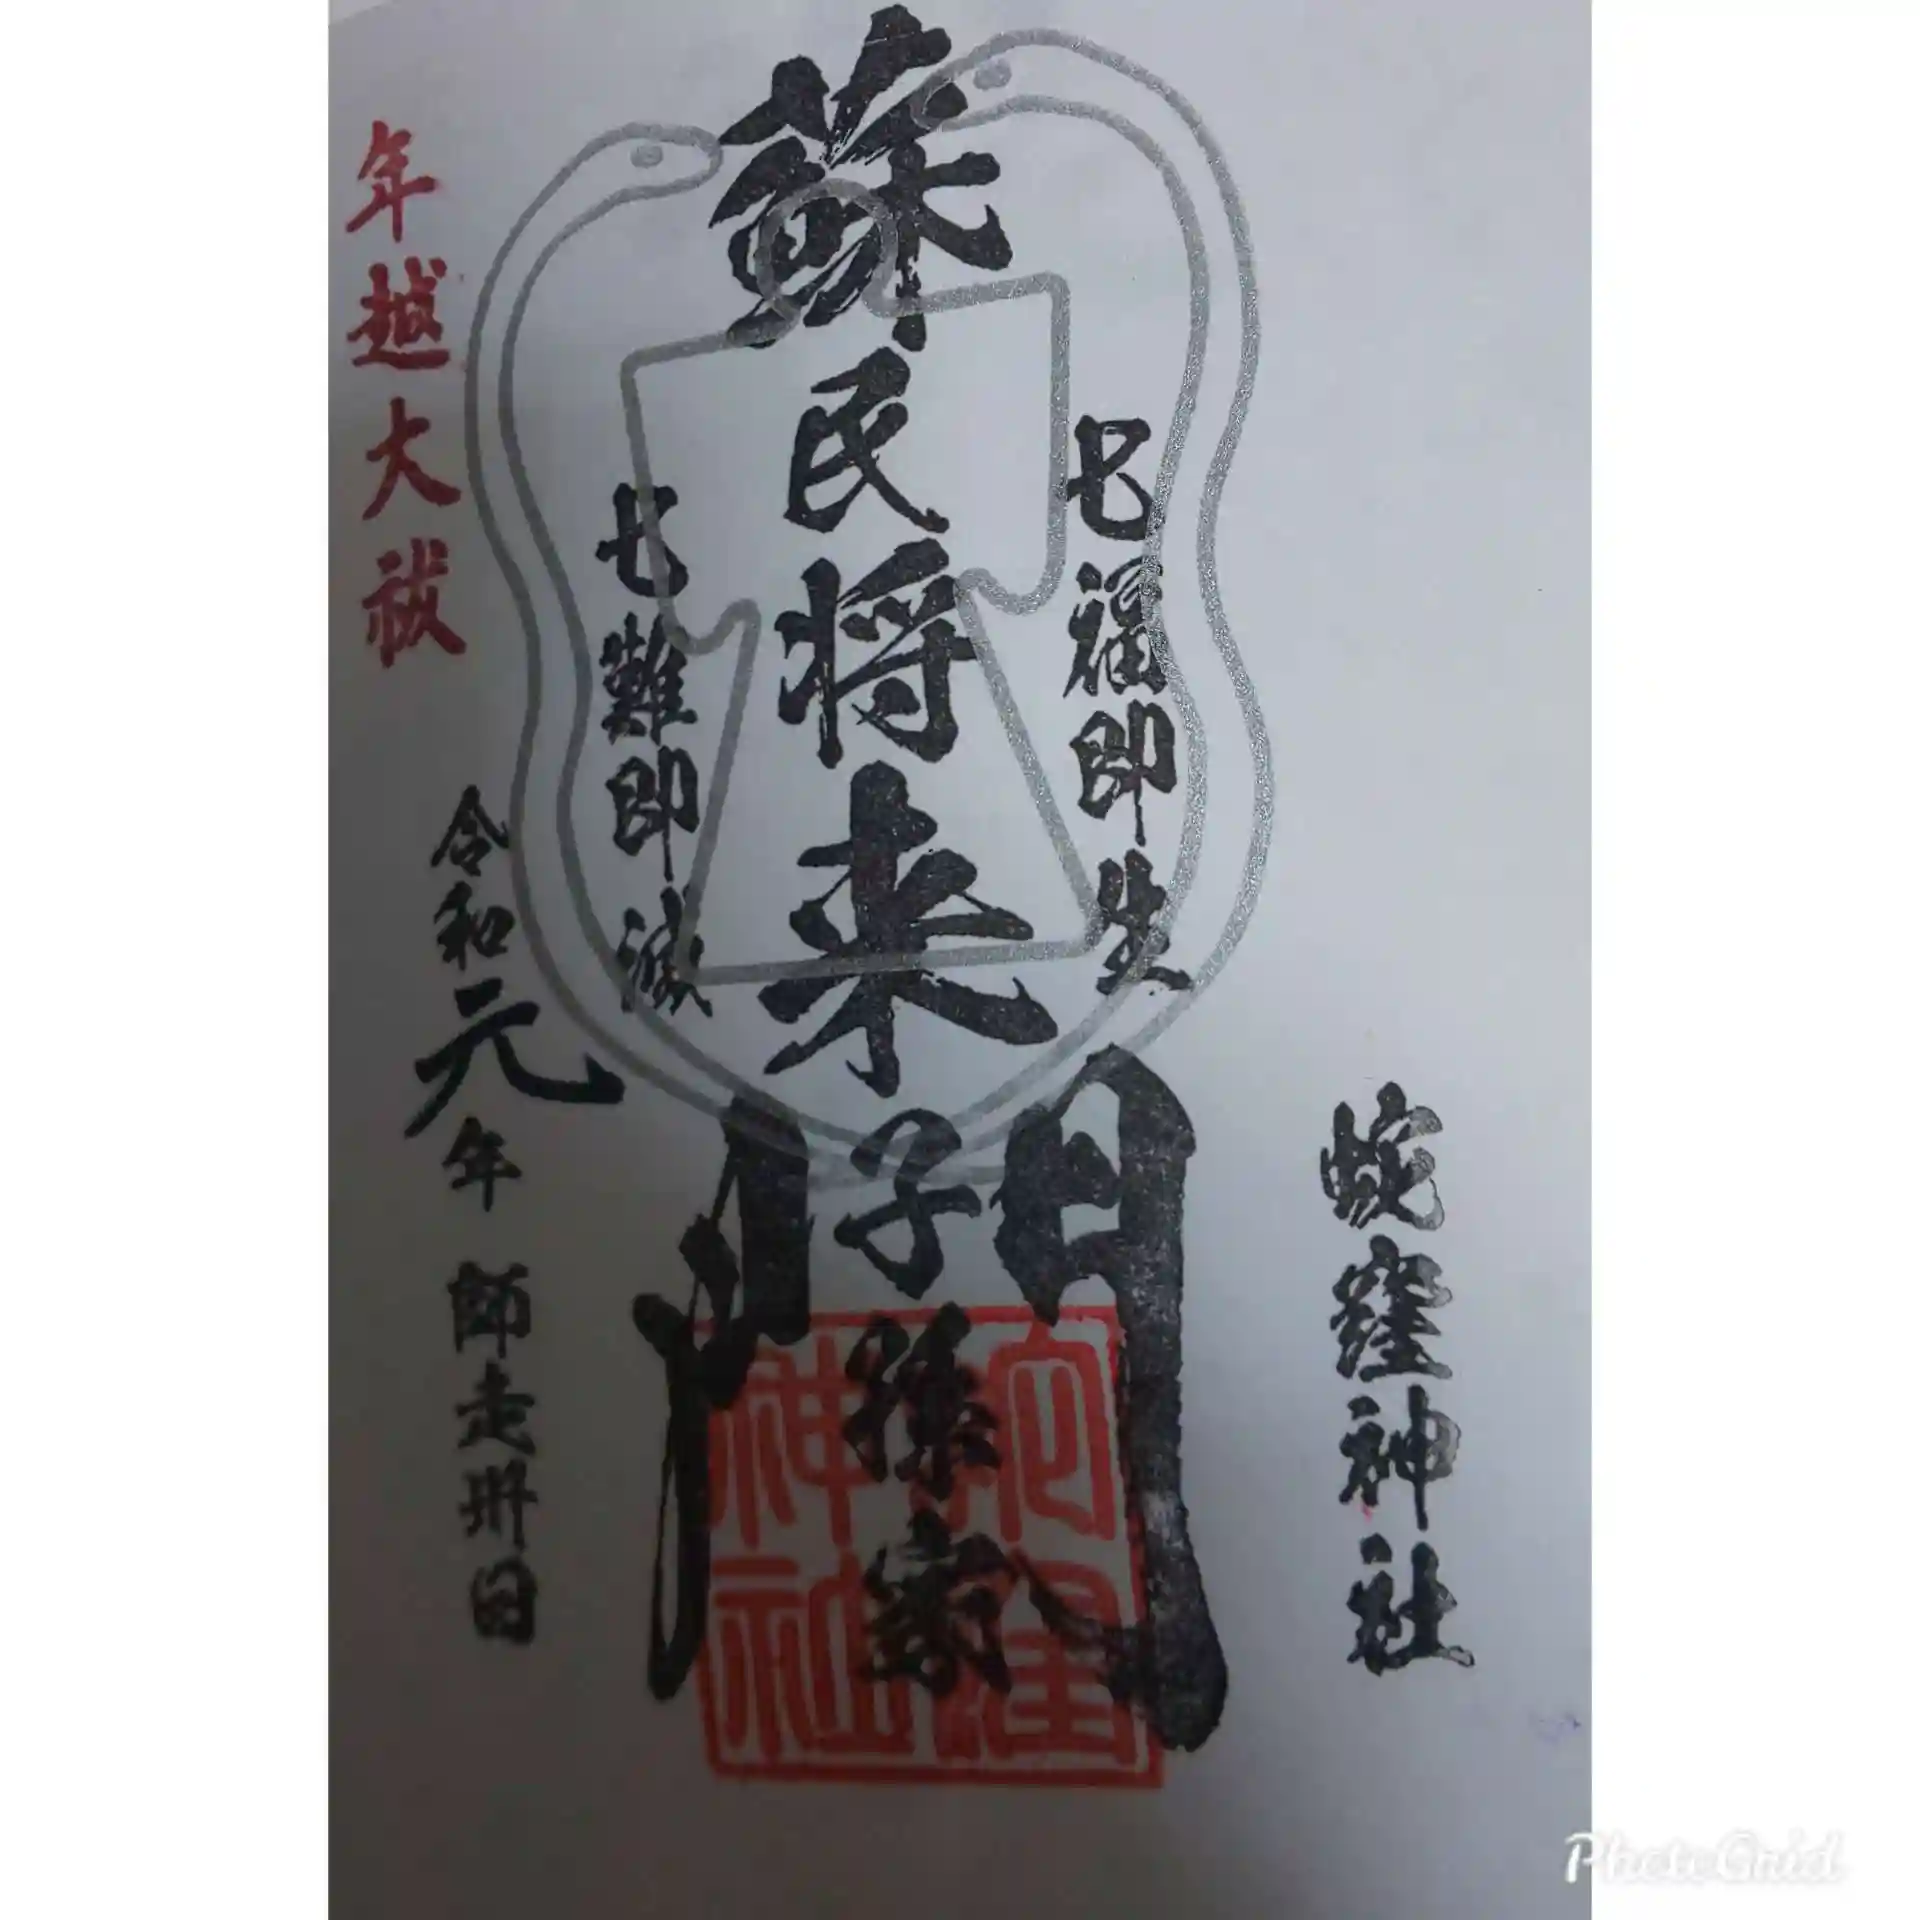 蛇窪神社
七福即生
蘇民将来子孫家門
七難即滅
令和元年 師走卅日
年越大祓
神社
PhotoGrid